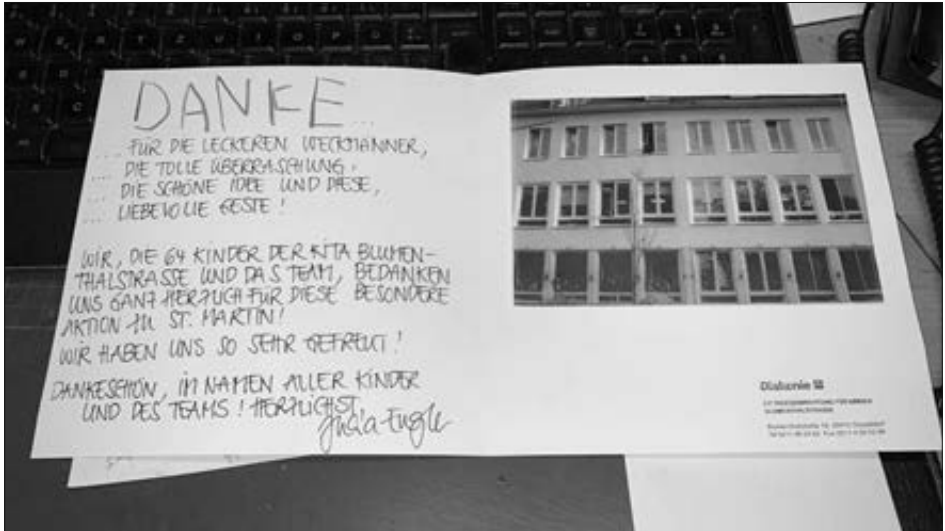 DANKE...
... FÜR DIE LECKEREN WECKMÄNNER,
... DIE TOLLE ÜBERRASCHUNG,
... DIE SCHÖNE IDEE UND DIESE,
... LIEBEVOLLE GESTE!
WIR, DIE 64 KINDER DER KITA BLUMEN-
THALSTRASSE UND DAS TEAM, BEDANKEN
UNS GANZ HERZLICH FÜR DIESE BESONDERE
AKTION ZU ST. MARTIN!
WIR HABEN UNS SO SEHR GEFREUT!
DANKESCHÖN, IM NAMEN ALLER KINDER
UND DES TEAMS! HERZLICHST,
Diakonie